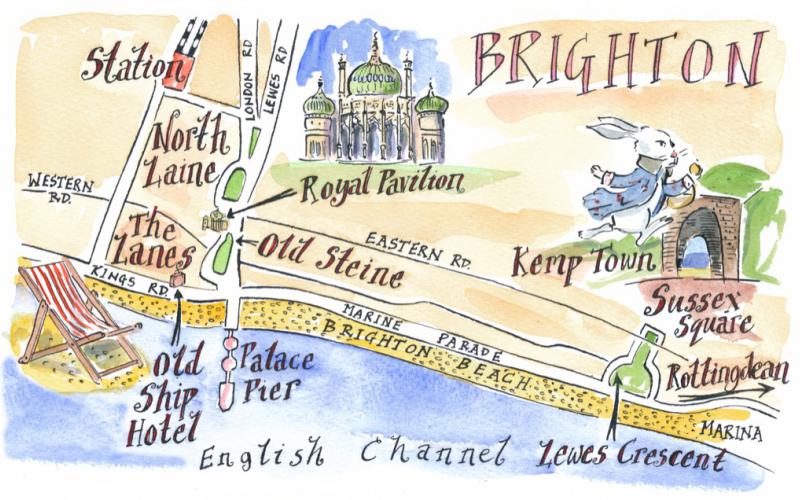 BRIGHTON
Station
LONDON RD
LEWES RD
North
Laine
WESTERN
RD.
Royal Pavilion
The
Lanes
Old Steine
EASTERN RD.
Kemp Town
KINGS RD.
Sussex
Square
MARINE PARADE
BRIGHTON BEACH
Old
Ship
Hotel
Palace
Pier
Rottingdean
MARINA
English Channel
Lewes Crescent